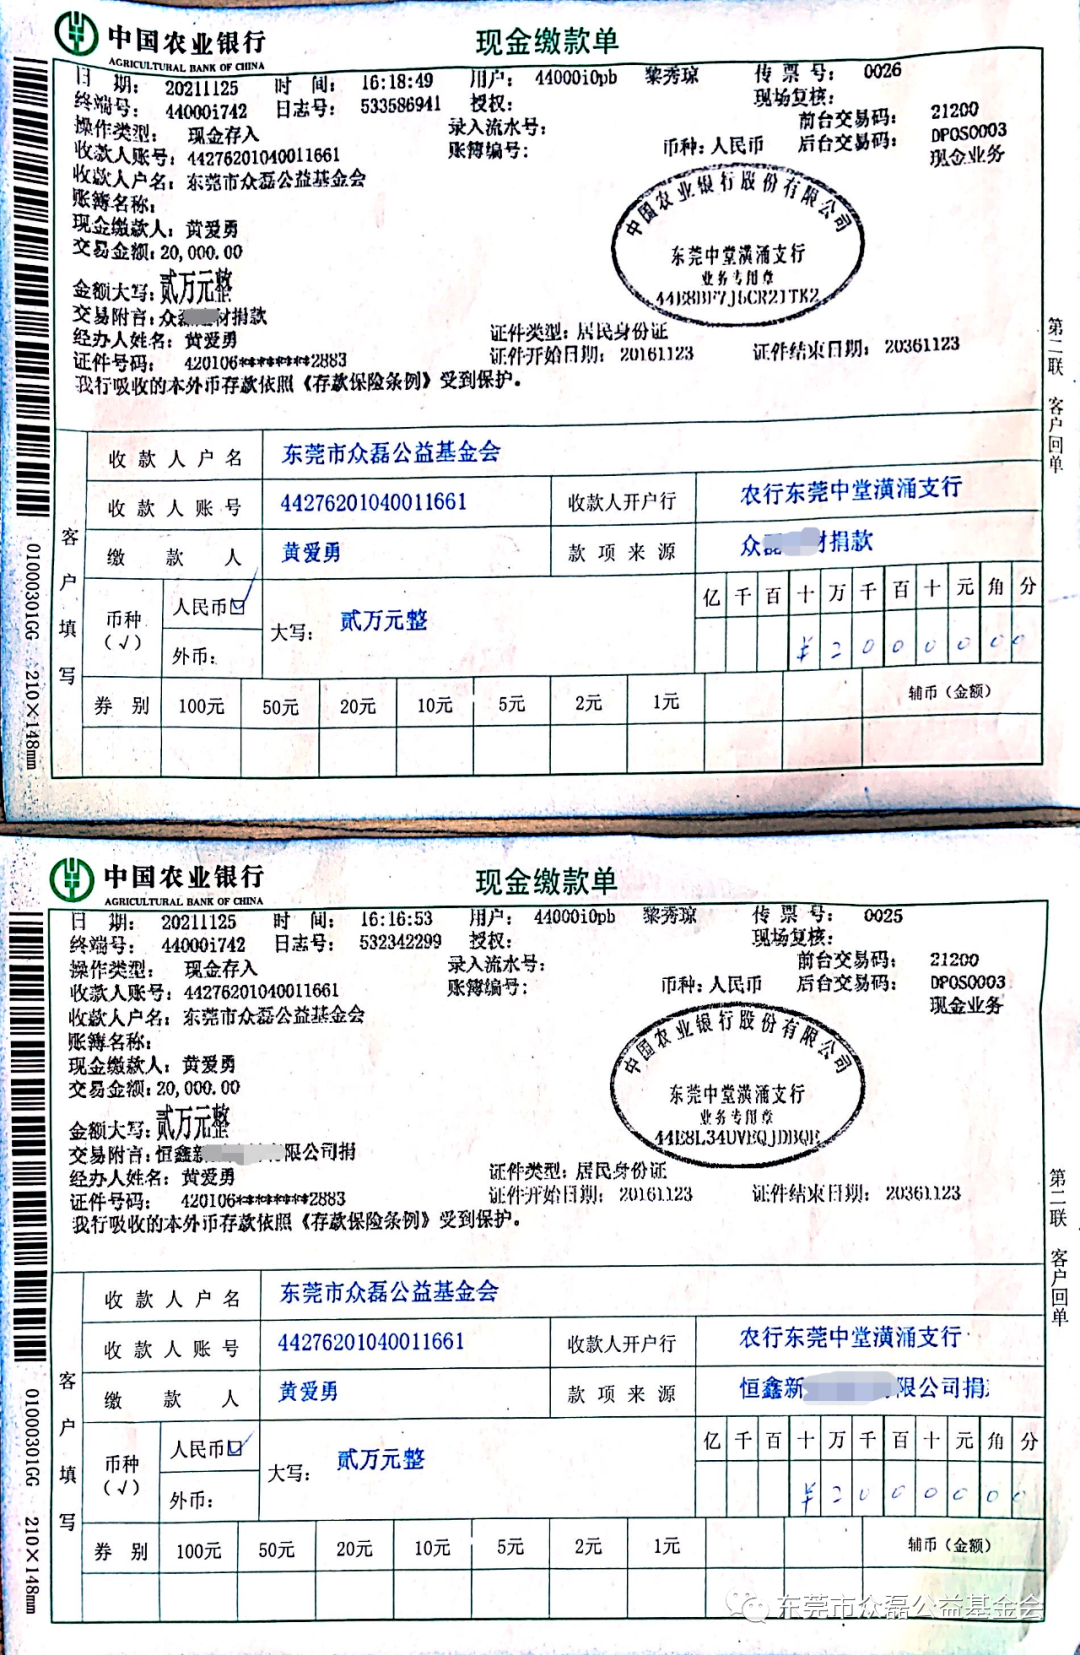 中国农业银行
AGRICULTURAL BANK OF CHINA
现金缴款单
日 期: 20211125 时 间: 16:18:49 用户: 44000i0pb 黎秀琼 传 票 号: 0026
终端号: 44000i742 日志号: 533586941 授权: 现场复核:
操作类型: 现金存入 录入流水号: 前台交易码: 21200
收款人账号: 44276201040011661 账簿编号: 币种: 人民币 后台交易码: DPOS0003
收款人户名: 东莞市众磊公益基金会 现金业务
账簿名称:
现金缴款人: 黄爱勇
交易金额: 20,000.00
金额大写: 贰万元整
交易附言: 众磊 材捐款
经办人姓名: 黄爱勇 证件类型: 居民身份证
证件号码: 420106********2883 证件开始日期: 20161123 证件结束日期: 20361123
我行吸收的本外币存款依照《存款保险条例》受到保护。
中国农业银行股份有限公司
东莞中堂潢涌支行
业务专用章
44E8BF7J5CR21TK2
第二联 客户回单
01000301GG 210×148mm
客户填写
收款人户名 东莞市众磊公益基金会
收款人账号 44276201040011661 收款人开户行 农行东莞中堂潢涌支行
缴款人 黄爱勇 款项来源 众磊 材捐款
币种(√) 人民币☑ 大写: 贰万元整 亿 千 百 十 万 千 百 十 元 角 分
外币: ¥ 2 0 0 0 0 0 0
券别 100元 50元 20元 10元 5元 2元 1元 辅币(金额)
中国农业银行
AGRICULTURAL BANK OF CHINA
现金缴款单
日 期: 20211125 时 间: 16:16:53 用户: 44000i0pb 黎秀琼 传 票 号: 0025
终端号: 44000i742 日志号: 532342299 授权: 现场复核:
操作类型: 现金存入 录入流水号: 前台交易码: 21200
收款人账号: 44276201040011661 账簿编号: 币种: 人民币 后台交易码: DPOS0003
收款人户名: 东莞市众磊公益基金会 现金业务
账簿名称:
现金缴款人: 黄爱勇
交易金额: 20,000.00
金额大写: 贰万元整
交易附言: 恒鑫新 有限公司捐
经办人姓名: 黄爱勇 证件类型: 居民身份证
证件号码: 420106********2883 证件开始日期: 20161123 证件结束日期: 20361123
我行吸收的本外币存款依照《存款保险条例》受到保护。
中国农业银行股份有限公司
东莞中堂潢涌支行
业务专用章
44E8L34UVEQJDBQE
第二联 客户回单
01000301GG 210×148mm
客户填写
收款人户名 东莞市众磊公益基金会
收款人账号 44276201040011661 收款人开户行 农行东莞中堂潢涌支行
缴款人 黄爱勇 款项来源 恒鑫新 限公司捐
币种(√) 人民币☑ 大写: 贰万元整 亿 千 百 十 万 千 百 十 元 角 分
外币: ¥ 2 0 0 0 0 0 0
券别 100元 50元 20元 10元 5元 2元 1元 辅币(金额)
东莞市众磊公益基金会